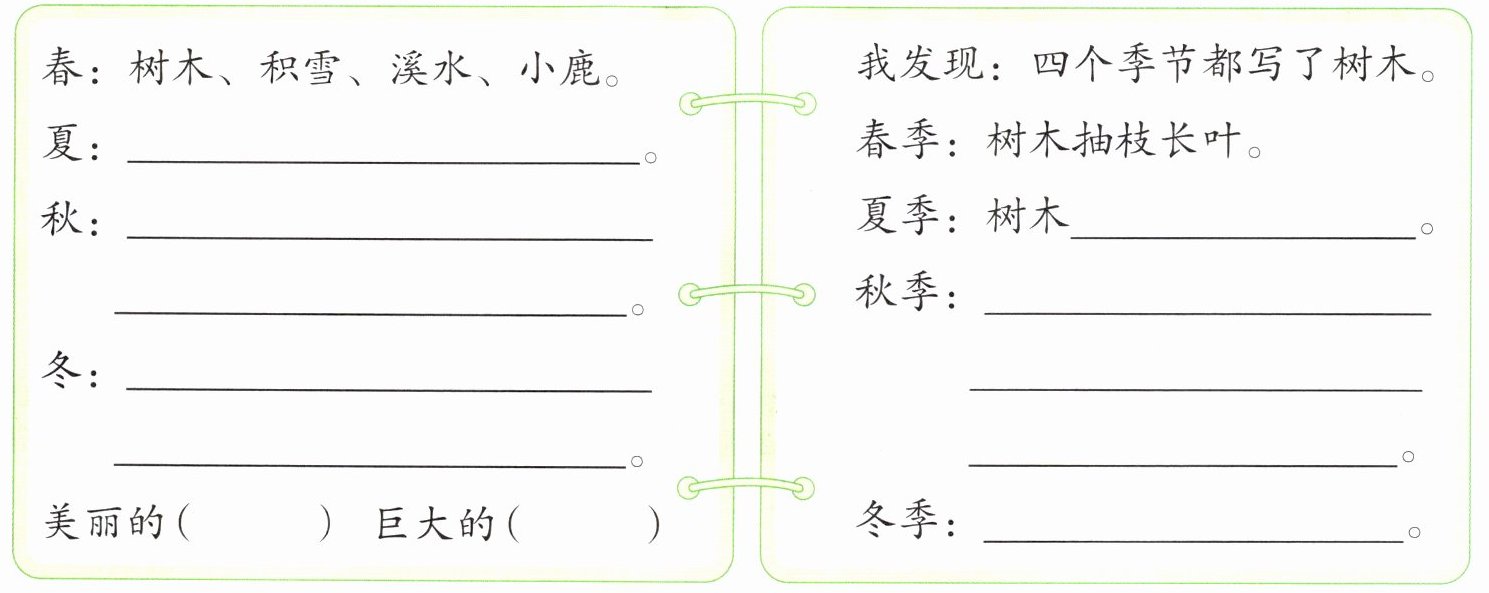 春：树木、积雪、溪水、小鹿。
夏：。
秋：
。
冬：
。
美丽的（ ） 巨大的（ ）
我发现：四个季节都写了树木。
春季：树木抽枝长叶。
夏季：树木。
秋季：
。
冬季：。